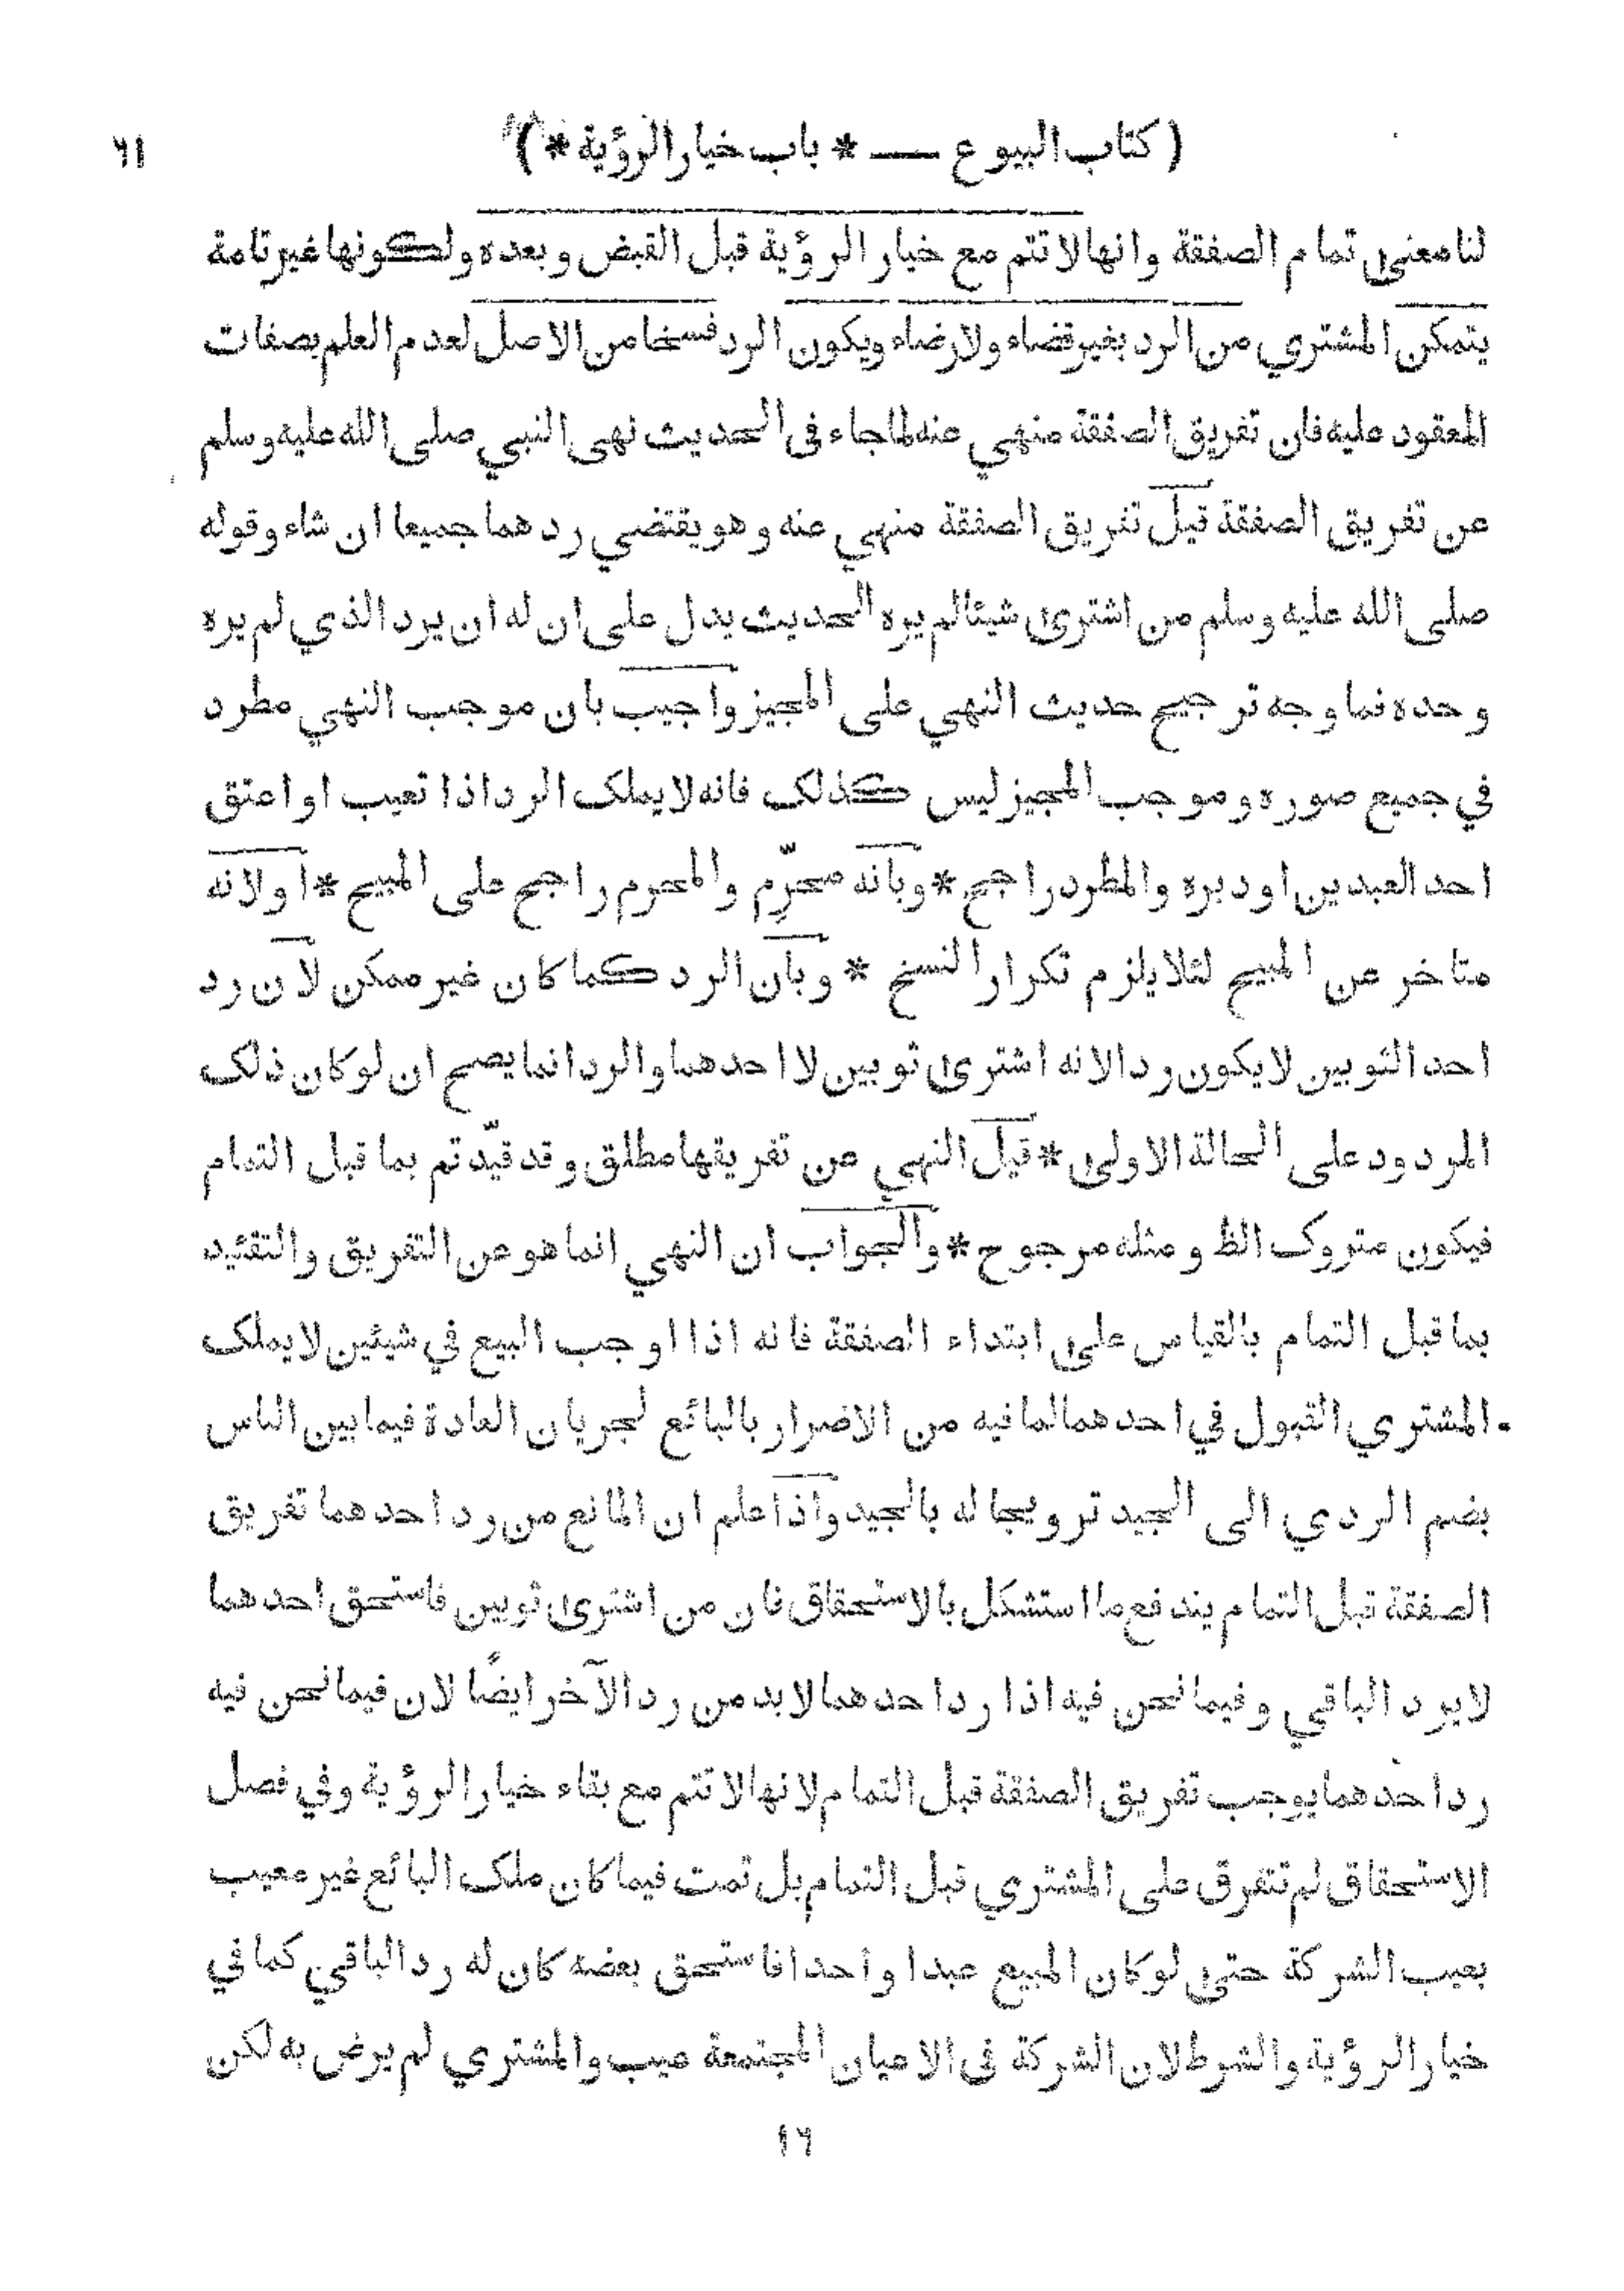 ( كتاب البيوع — * باب خيار الرؤية * )
٦١
لنا معنى تمام الصفقة وانها لا تتم مع خيار الرؤية قبل القبض وبعده ولكونها غير تامة
يتمكن المشتري من الرد بغير قضاء ولا رضاء ويكون الرد فسخا من الاصل لعدم العلم بصفات
المعقود عليه فان تفريق الصفقة منهي عنه لما جاء في الحديث نهى النبي صلى الله عليه وسلم
عن تفريق الصفقة قيل تفريق الصفقة منهي عنه وهو يقتضي ردهما جميعا ان شاء وقوله
صلى الله عليه وسلم من اشترى شيئا لم يره الحديث يدل على ان له ان يرد الذي لم يره
وحده فما وجه ترجيح حديث النهي على المجيز واجيب بان موجب النهي مطرد
في جميع صوره وموجب المجيز ليس كذلك فانه لا يملك الرد اذا تعيب او اعتق
احد العبدين او دبره والمطرد راجح * وبانه محرِّم والمحرم راجح على المبيح * اولانه
متاخر عن المبيح لئلا يلزم تكرار النسخ * وبان الرد كما كان غير ممكن لان رد
احد الثوبين لا يكون ردا لانه اشترى ثوبين لا احدهما والرد انما يصح ان لو كان ذلك
المردود على الحالة الاولى * قيل النهي عن تفريقها مطلق وقد قيّدتم بما قبل التمام
فيكون متروك الظ ومثله مرجوح * والجواب ان النهي انما هو عن التفريق والتقئيد
بما قبل التمام بالقياس على ابتداء الصفقة فانه اذا اوجب البيع في شيئين لا يملك
المشتري القبول في احدهما لما فيه من الاضرار بالبائع لجريان العادة فيما بين الناس
بضم الردي الى الجيد ترويجا له بالجيد واذا علم ان المانع من رد احدهما تفريق
الصفقة قبل التمام يندفع ما استشكل بالاستحقاق فان من اشترى ثوبين فاستحق احدهما
لا يرد الباقي وفيما نحن فيه اذا رد احدهما لا بد من رد الآخر ايضًا لان فيما نحن فيه
رد احدهما يوجب تفريق الصفقة قبل التمام لانها لا تتم مع بقاء خيار الرؤية وفي فصل
الاستحقاق لم تتفرق على المشتري قبل التمام بل تمت فيما كان ملك البائع غير معيب
بعيب الشركة حتى لو كان المبيع عبدا واحدا فاستحق بعضه كان له رد الباقي كما في
خيار الرؤية والشرط لان الشركة في الاعيان المجتمعة عيب والمشتري لم يرض به لكن
١٦